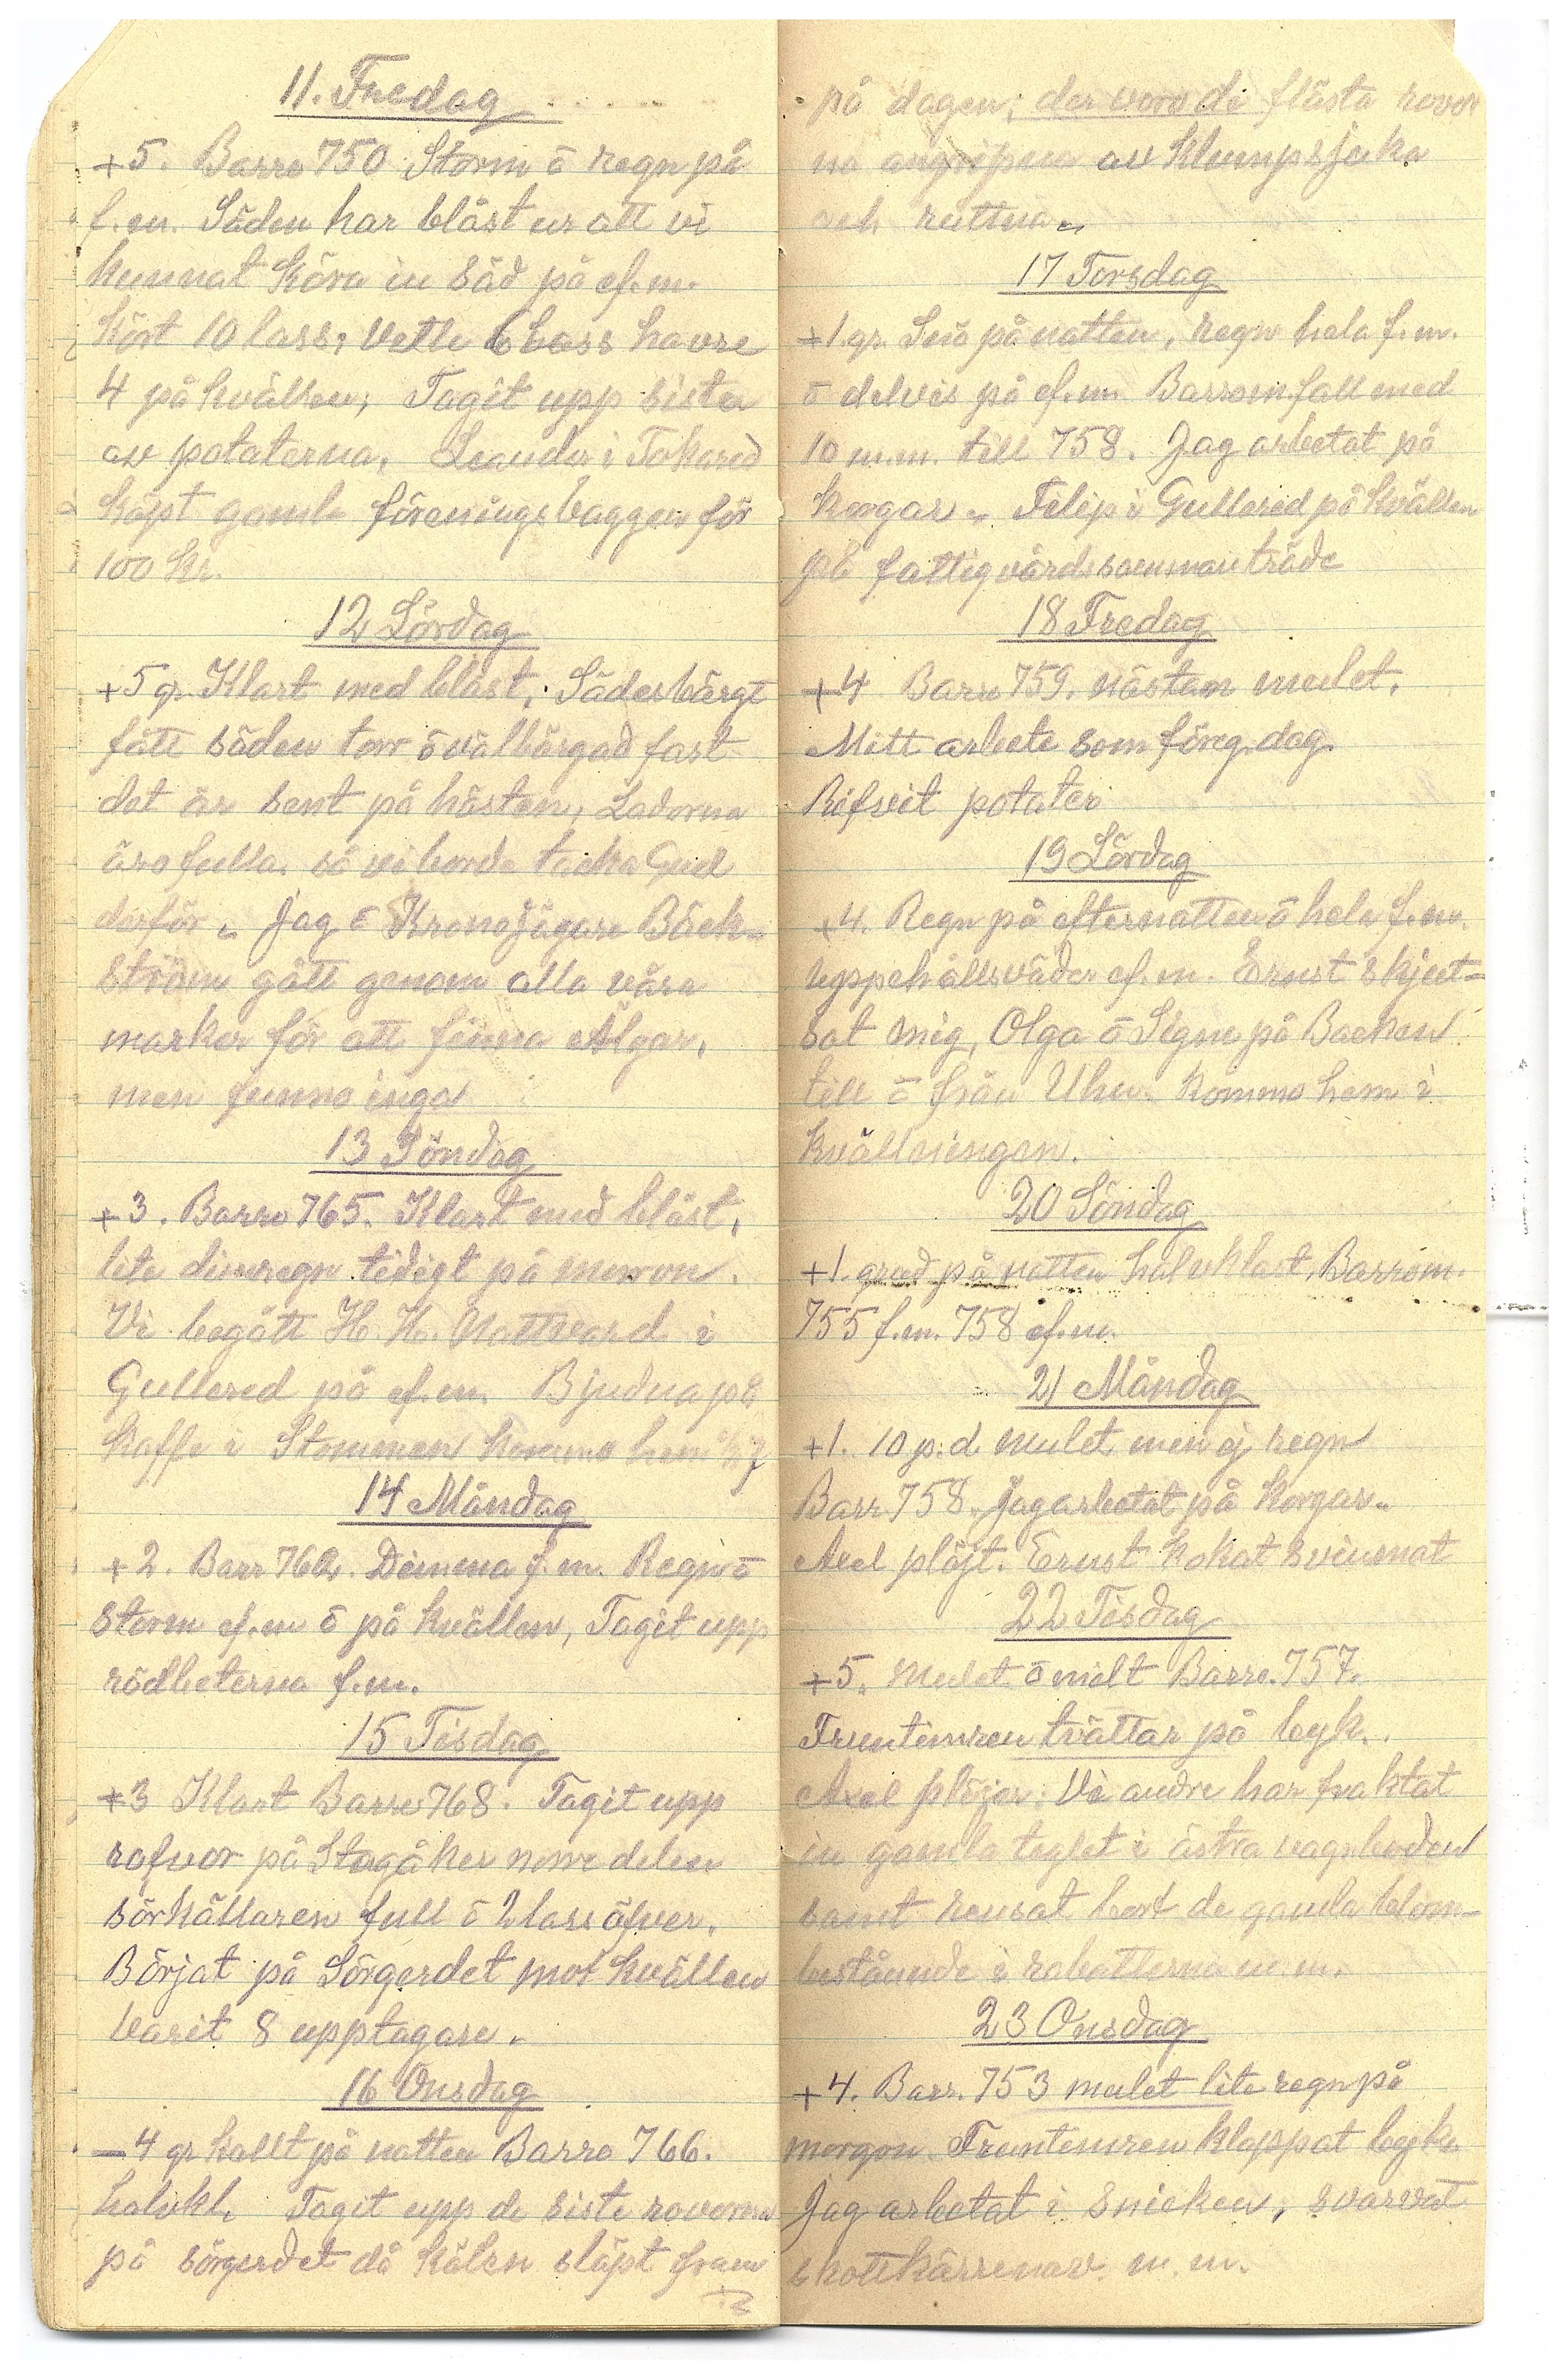 11. Fredag
+5. Barro 750 Storm ō regn på
f.m. Säden har blåst ur att vi
kunnat köra in säd på ef.m.
kört 10 lass, vette 6 lass havre
4 på kvällen; Tagit upp sista
av potaterna, Leander i Tokared
köpt gamla föreningsbaggen för
100 kr.
12 Lördag
+5 gr. Klart med blåst, Södesbärgt
fått säden torr ō välbärgad fast
det är sent på hösten, Ladorna
äro fulla så vi borde tacka Gud
därför „ Jag ō Kronojägare Bäck-
ström gått genom alla våra
marker för att finna Älgar,
men funno inga
13 Söndag
+3. Barro 765. Klart med blåst,
lite dimregn tidigt på morron.
Vi begått H. H. Nattvard i
Gullered på ef.m. Bjudna på
kaffe i Stommen kommo hem kl 7
14 Måndag
+2. Barr 762. Dimma f.m. Regn ō
storm ef.m ō på kvällen, Tagit upp
rödbeterna f.m.
15 Tisdag
+3 Klart Barro 768. Tagit upp
rofvor på Stegåker norre delen
sörkällaren full ō 2 lass öfver.
Börjat på Sörgerdet mot kvällen
varit 8 upptagare.
16 Onsdag
-4 gr kallt på natten Barro 766.
halvkl. Tagit upp de siste rovorna
på sörgerdet då kälen släpt fram
på dagen; der voro de flästa rovor
na angripna av klumpsjuka
och ruttna „
17 Torsdag
+1 gr. Snö på natten, regn hela f.m.
ō delvis på ef.m. Barrom. fall med
10 m.m. till 758. Jag arbetat på
korgar „ Filip i Gullered på kvällen
på fattigvårdssammanträde
18 Fredag
+4 Barro 759. nästan mulet.
Mitt arbete som föreg. dag.
Rifvit potater
19 Lördag
+4. Regn på efternatten ō hela f.m.
uppehållsväder ef.m. Ernst skjut-
sat mig, Olga ō Signe på Backen
till ō från Uhn. kommo hem i
kvällningen.
20 Söndag
+1. grad på natten halvklart, Barrom.
755 f.m. 758 ef.m.
21 Måndag
+1. 10 p: d mulet men ej regn
Barr 758. Jag arbetat på korgar „
Axel plöjt. Ernst kokat svinmat
22 Tisdag
+5. Mulet ō milt Barro. 757.
Fruntimren tvättar på byk.
Axel plöjer. Vi andre har fraktat
in gamla teglet i östra vagnboden
samt rensat bort de gamla blom-
bestånde i rabatterna m.m.
23 Onsdag
+4. Barr. 753 mulet lite regn på
morgon. Fruntimren klappat byk.
Jag arbetat i snicken, svarvat
skottkärrenav. m.m.